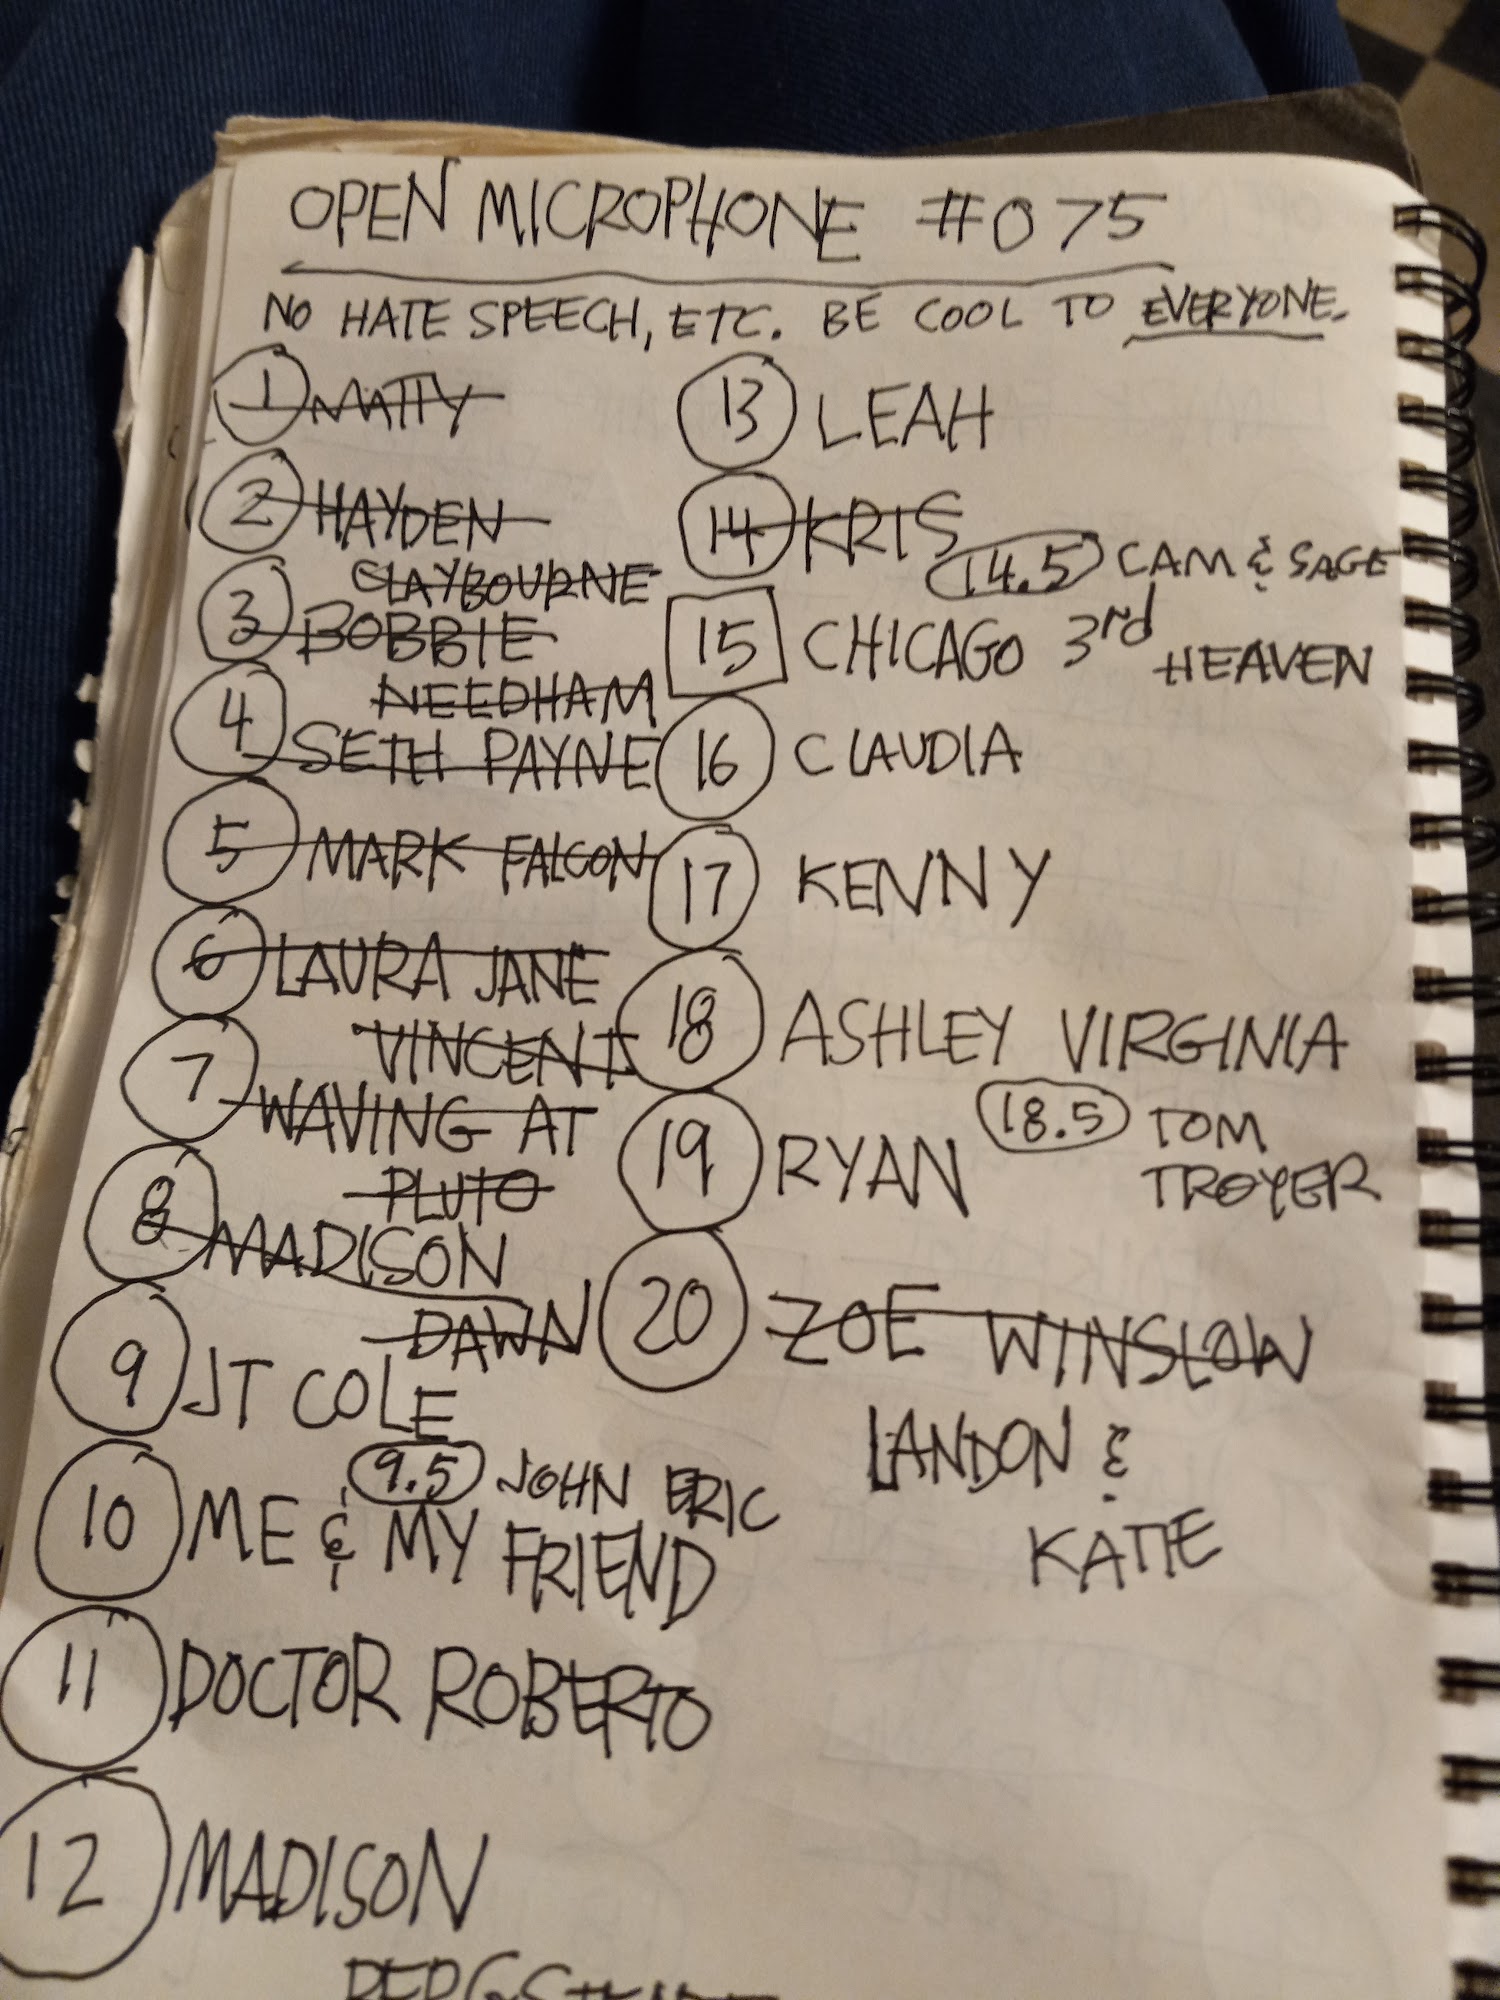 OPEN MICROPHONE #075
NO HATE SPEECH, ETC. BE COOL TO EVERYONE.
1 MATTY
2 HAYDEN
CLAYBOURNE
3 BOBBIE
NEEDHAM
4 SETH PAYNE
5 MARK FALCON
6 LAURA JANE
VINCENT
7 WAVING AT
PLUTO
8 MADISON
DAWN
9 JT COLE
9.5 JOHN ERIC
10 ME & MY FRIEND
11 DOCTOR ROBERTO
12 MADISON
13 LEAH
14 KRIS
14.5 CAM & SAGE
15 CHICAGO 3rd HEAVEN
16 CLAUDIA
17 KENNY
18 ASHLEY VIRGINIA
18.5 TOM
TROYER
19 RYAN
20 ZOE WINSLOW
LANDON &
KATIE